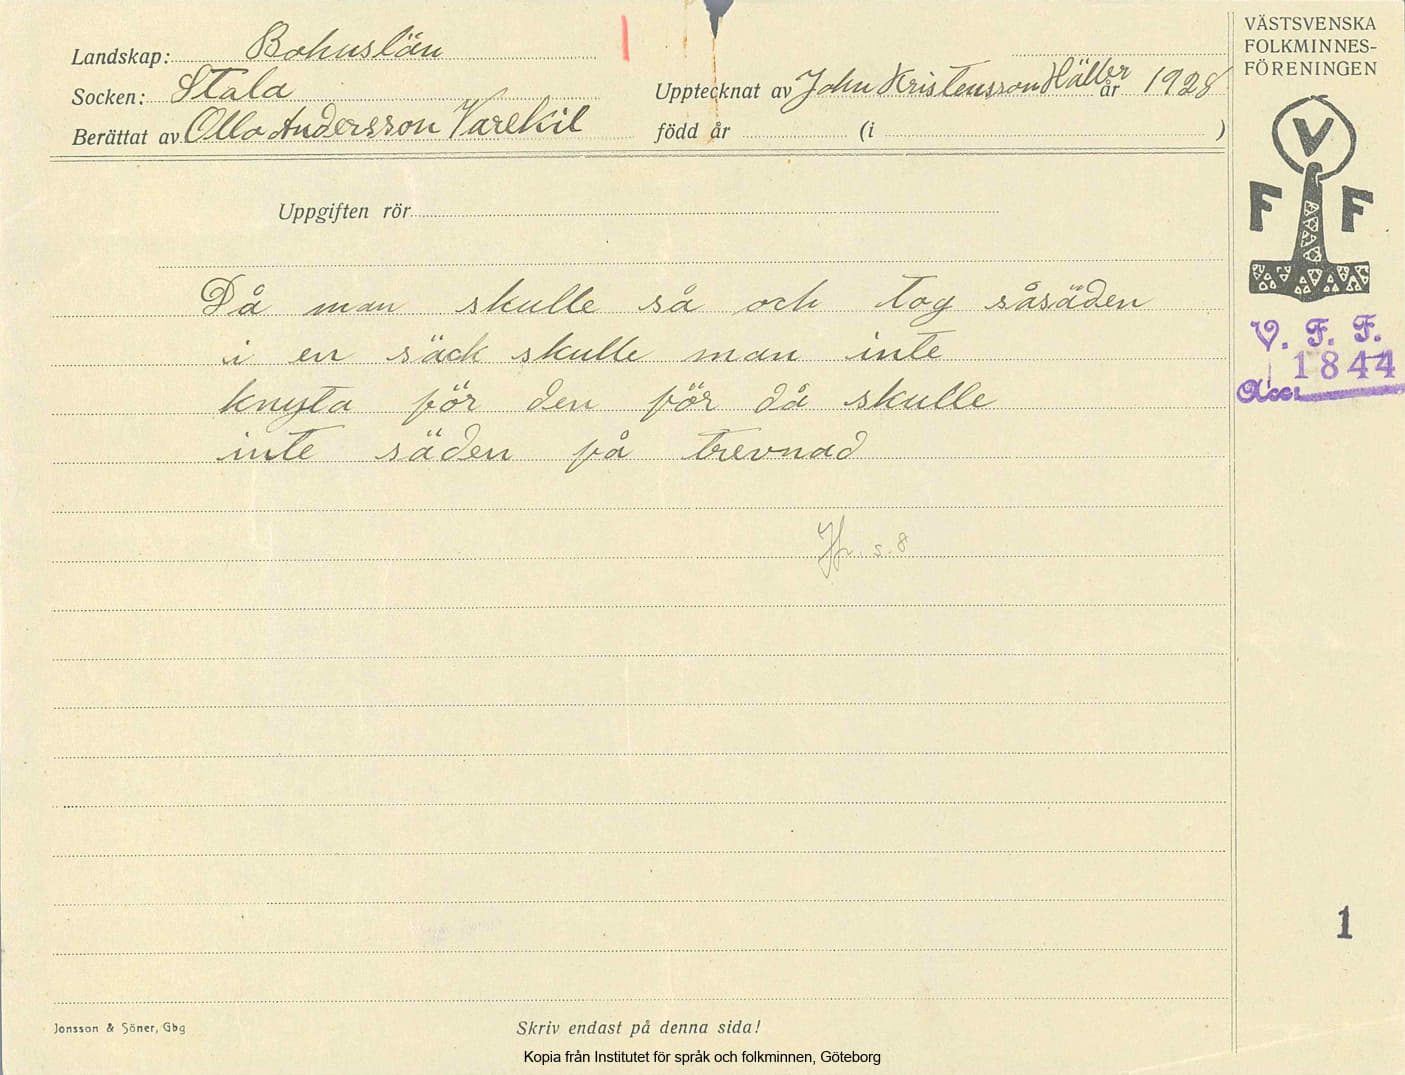 Landskap: Bohuslän
Socken: Stala
Berättat av Olla Andersson Varekil
Upptecknat av John Kristensson Häller år 1928
född år (i )
VÄSTSVENSKA
FOLKMINNES-
FÖRENINGEN
V
F F
V. F. F.
1844
Acc.
Uppgiften rör
Då man skulle så och tog såsäden
i en säck skulle man inte
knyta för den för då skulle
inte säden få trevnad
s. 8
1
Jonsson & Söner, Gbg
Skriv endast på denna sida!
Kopia från Institutet för språk och folkminnen, Göteborg